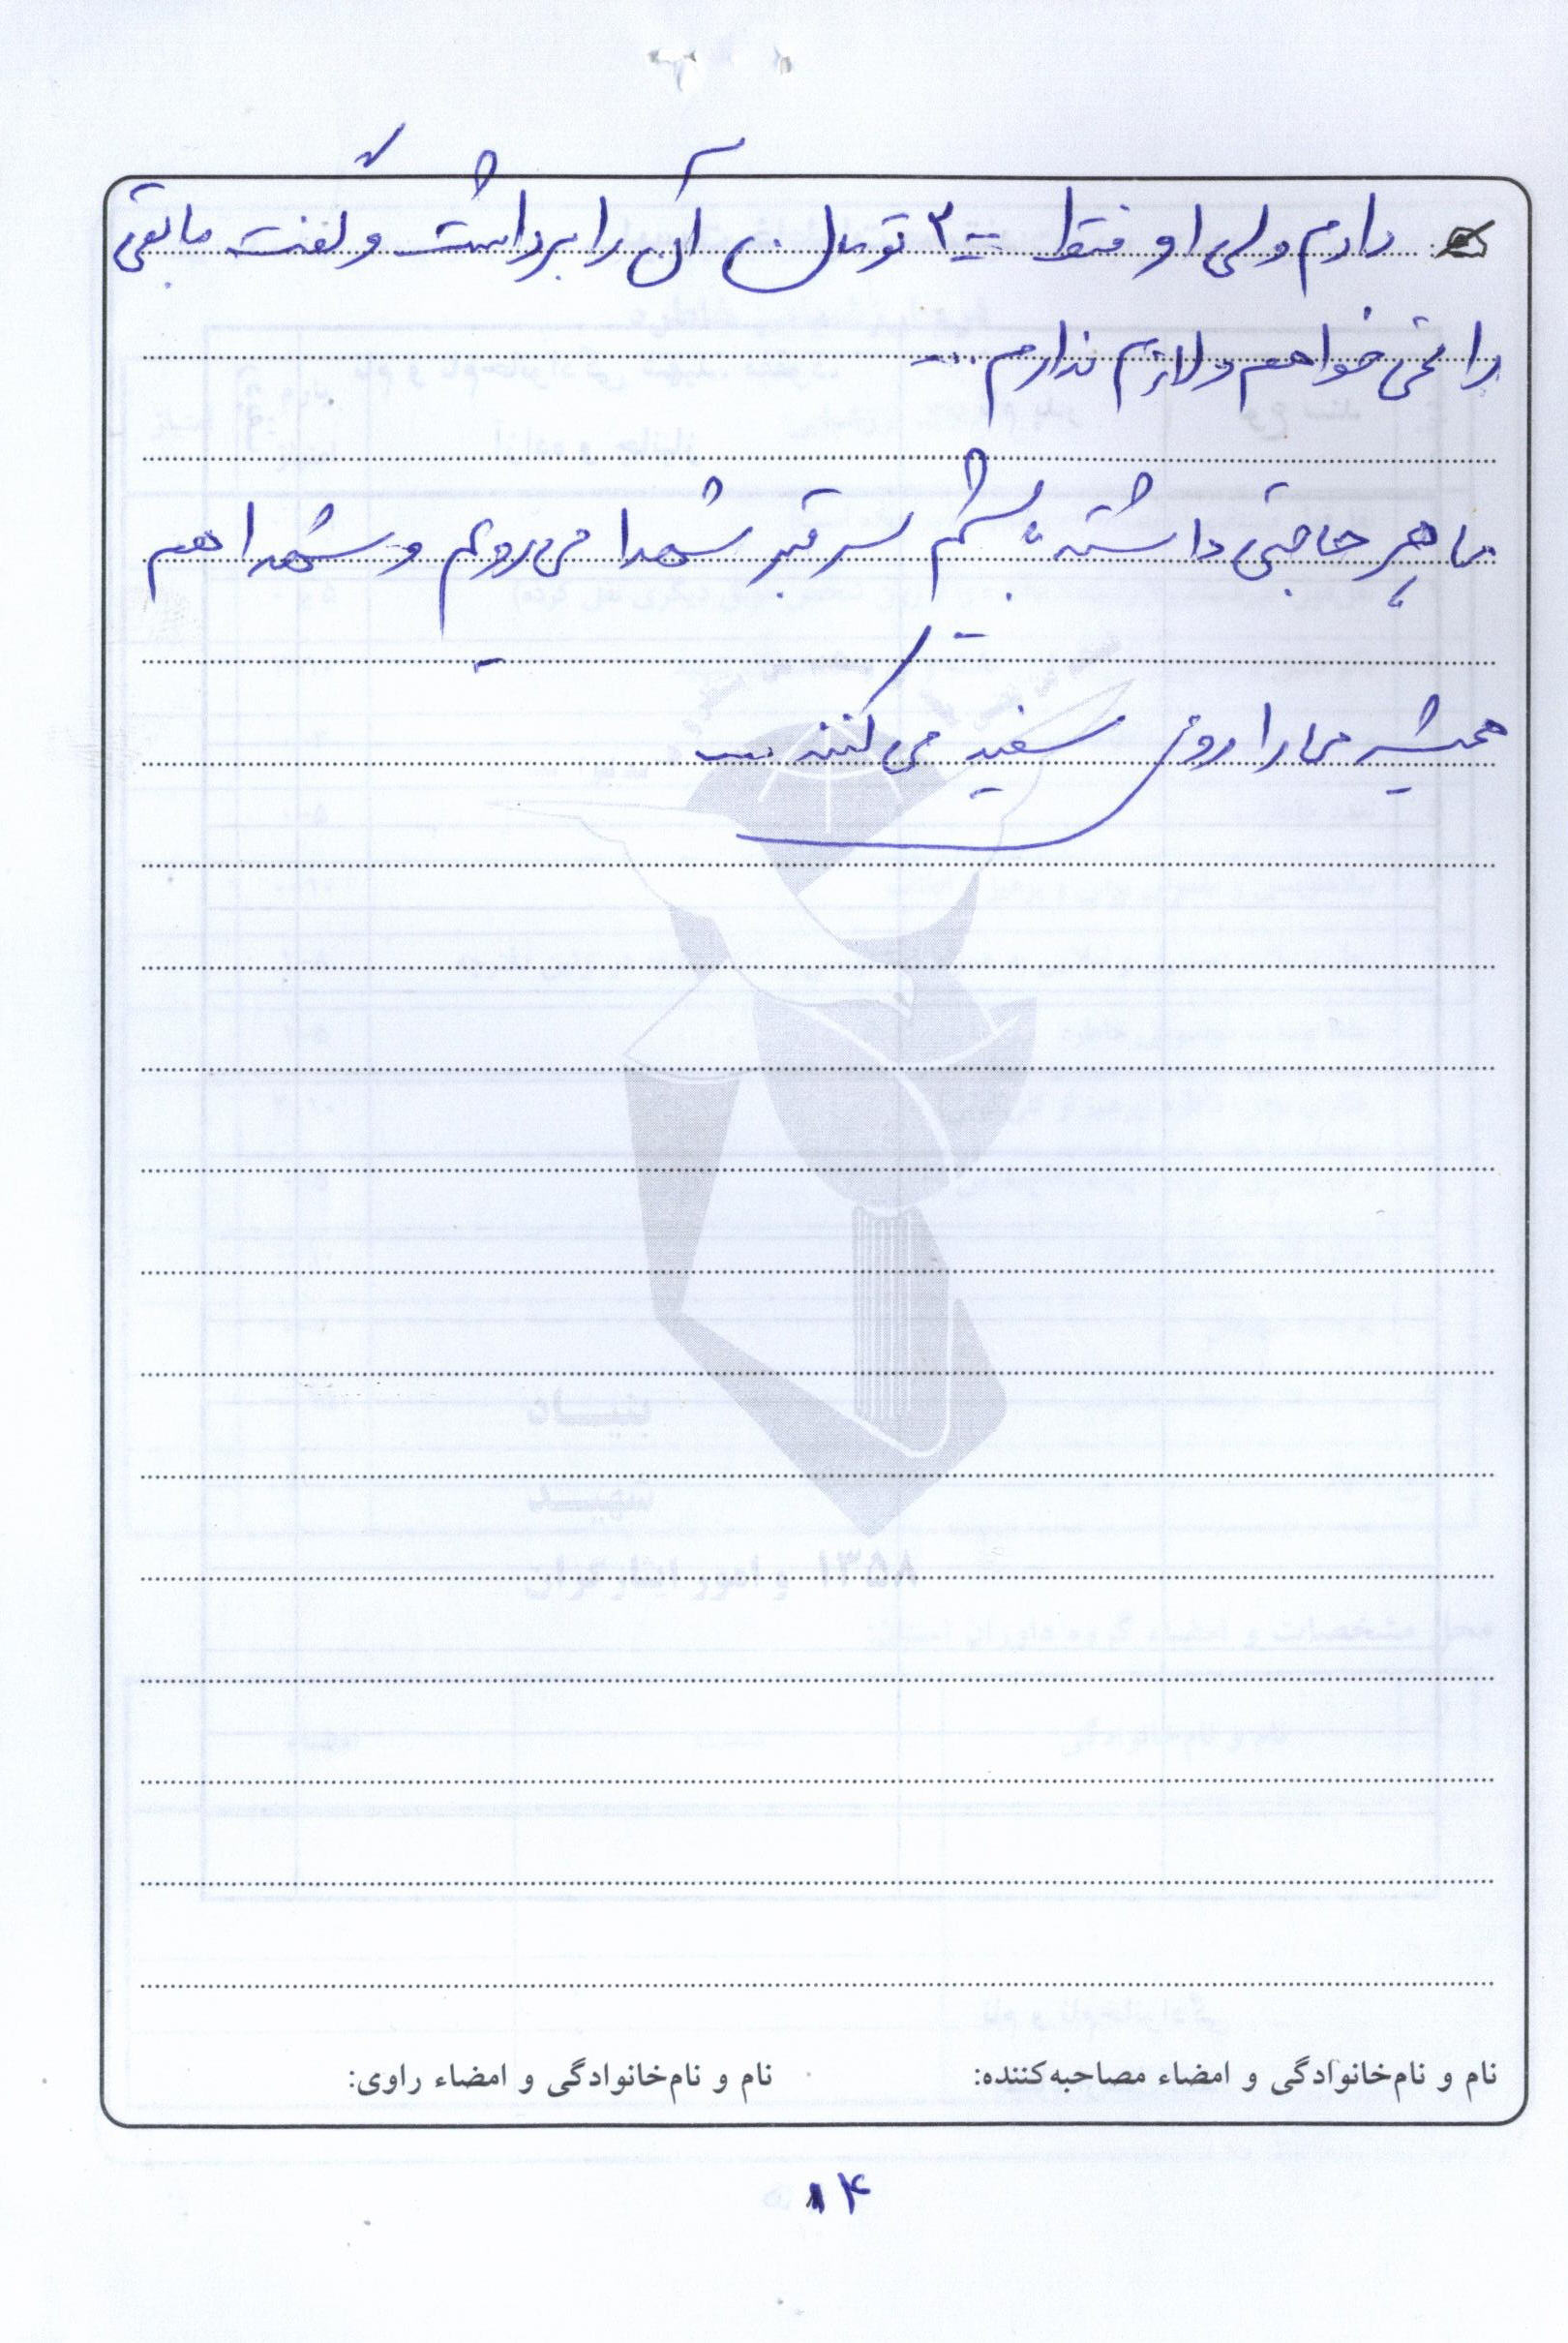 دادم ولی او فقط ۳۰۰ تومان آن را برداشت و گفت مابقی
را نمی خواهم و لازم ندارم ...
ما هر حاجتی داشته باشیم سر قبر شهدا می رویم و شهدا هم
همیشه ما را رو سفید می کنند ...
نام و نام‌خانوادگی و امضاء مصاحبه‌کننده:
نام و نام‌خانوادگی و امضاء راوی:
۱۴